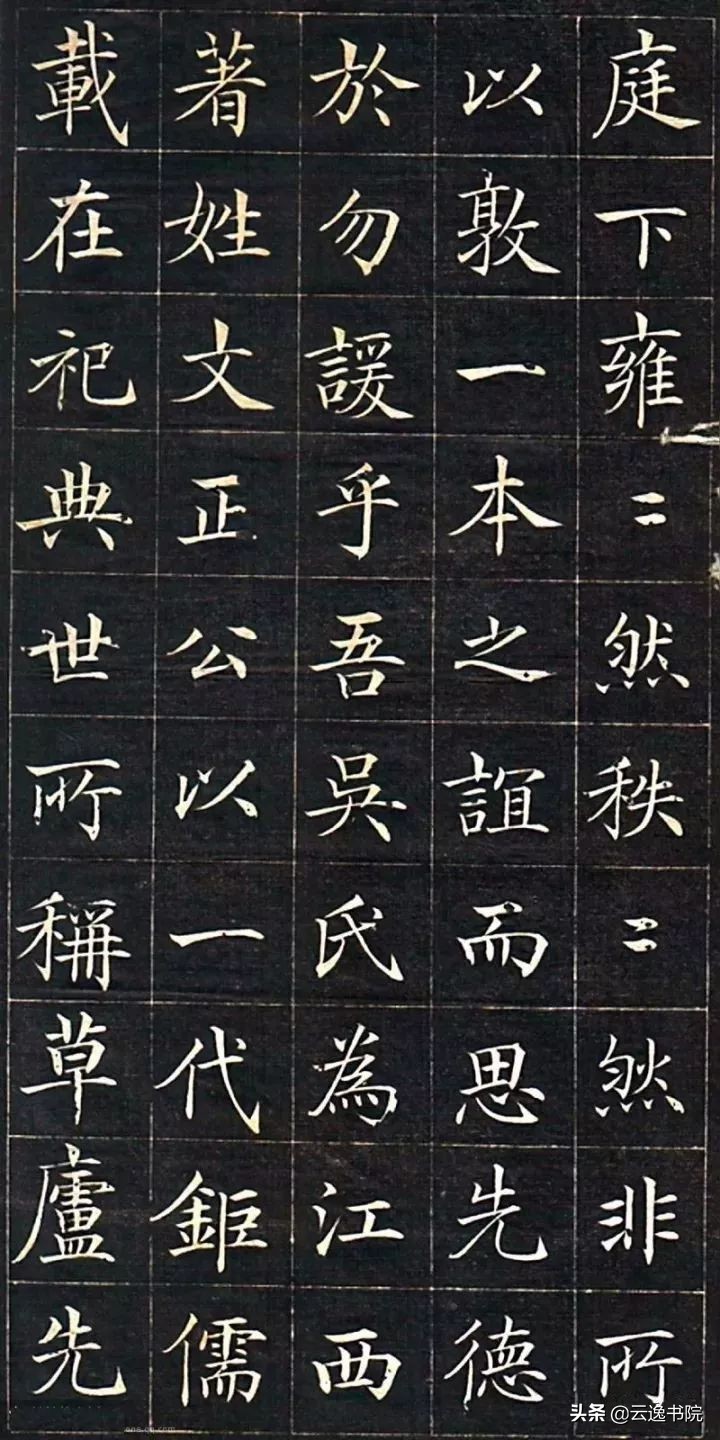 庭下雍〻然秩〻然非所
以敦一本之誼而思先德
於勿諼乎吾吳氏為江西
著姓文正公以一代鉅儒
載在祀典世所稱草廬先
头条@云逸书院